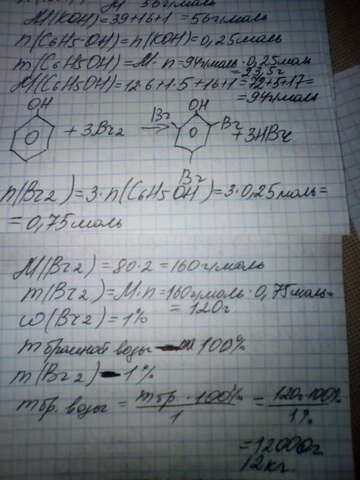 M(KOH)=39+16+1=56г/моль
n(C6H5OH)=n(KOH)=0,25моль
m(C6H5OH)=M·n=94г/моль·0,25моль
=23,5г
M(C6H5OH)=12·6+1·5+16+1=72+5+17=
=94г/моль
OH
+3Br2 →
OH
Br
Br
Br
+3HBr
n(Br2)=3·n(C6H5OH)=3·0,25моль=
=0,75моль
M(Br2)=80·2=160г/моль
m(Br2)=M·n=160г/моль·0,75моль=
=120г
ω(Br2)=1%
m бромной воды - 100%
m(Br2) - 1%
m бр. воды = mбр.·100% / 1 = 120г·100% / 1%
=12000г
12кг.